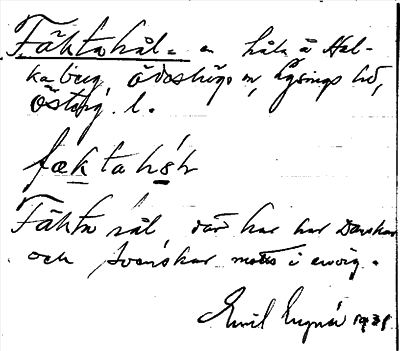 Fäktahål = en håla å Hal-
kaberg, Ödeshögs sn, Lysings hd,
Östergl. l.
fæktahóh
Fäkta hål där har har Danskar
och Svenskar mötts i envig.
Emil 1931